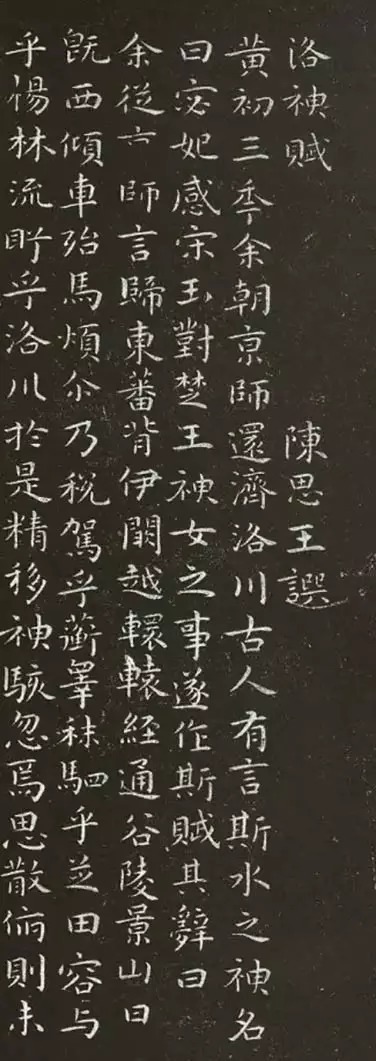 洛神賦 陳思王譔
黄初三秊余朝京師還濟洛川古人有言斯水之神名
曰宓妃感宋玉對楚王神女之事遂作斯賦其辭曰
余從京師言歸東蕃背伊闕越轘轅經通谷陵景山日
既西傾車殆馬煩尒乃税駕乎蘅皋秣駟乎芝田容与
乎楊林流眄乎洛川於是精移神駭忽焉思散俯則未